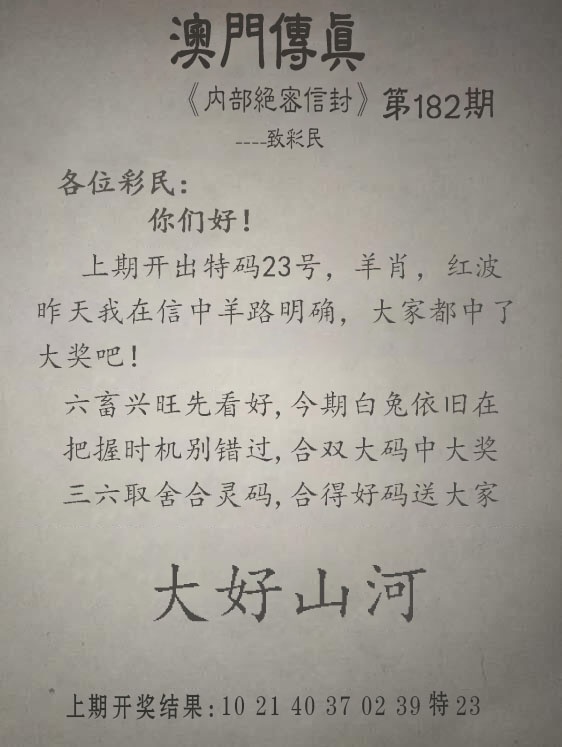 澳門傳真
《内部絕密信封》第182期
----致彩民
各位彩民:
你们好!
上期开出特码23号, 羊肖, 红波
昨天我在信中羊路明确, 大家都中了
大奖吧!
六畜兴旺先看好,今期白兔依旧在
把握时机别错过,合双大码中大奖
三六取舍合灵码,合得好码送大家
大好山河
上期开奖结果:10 21 40 37 02 39 特 23